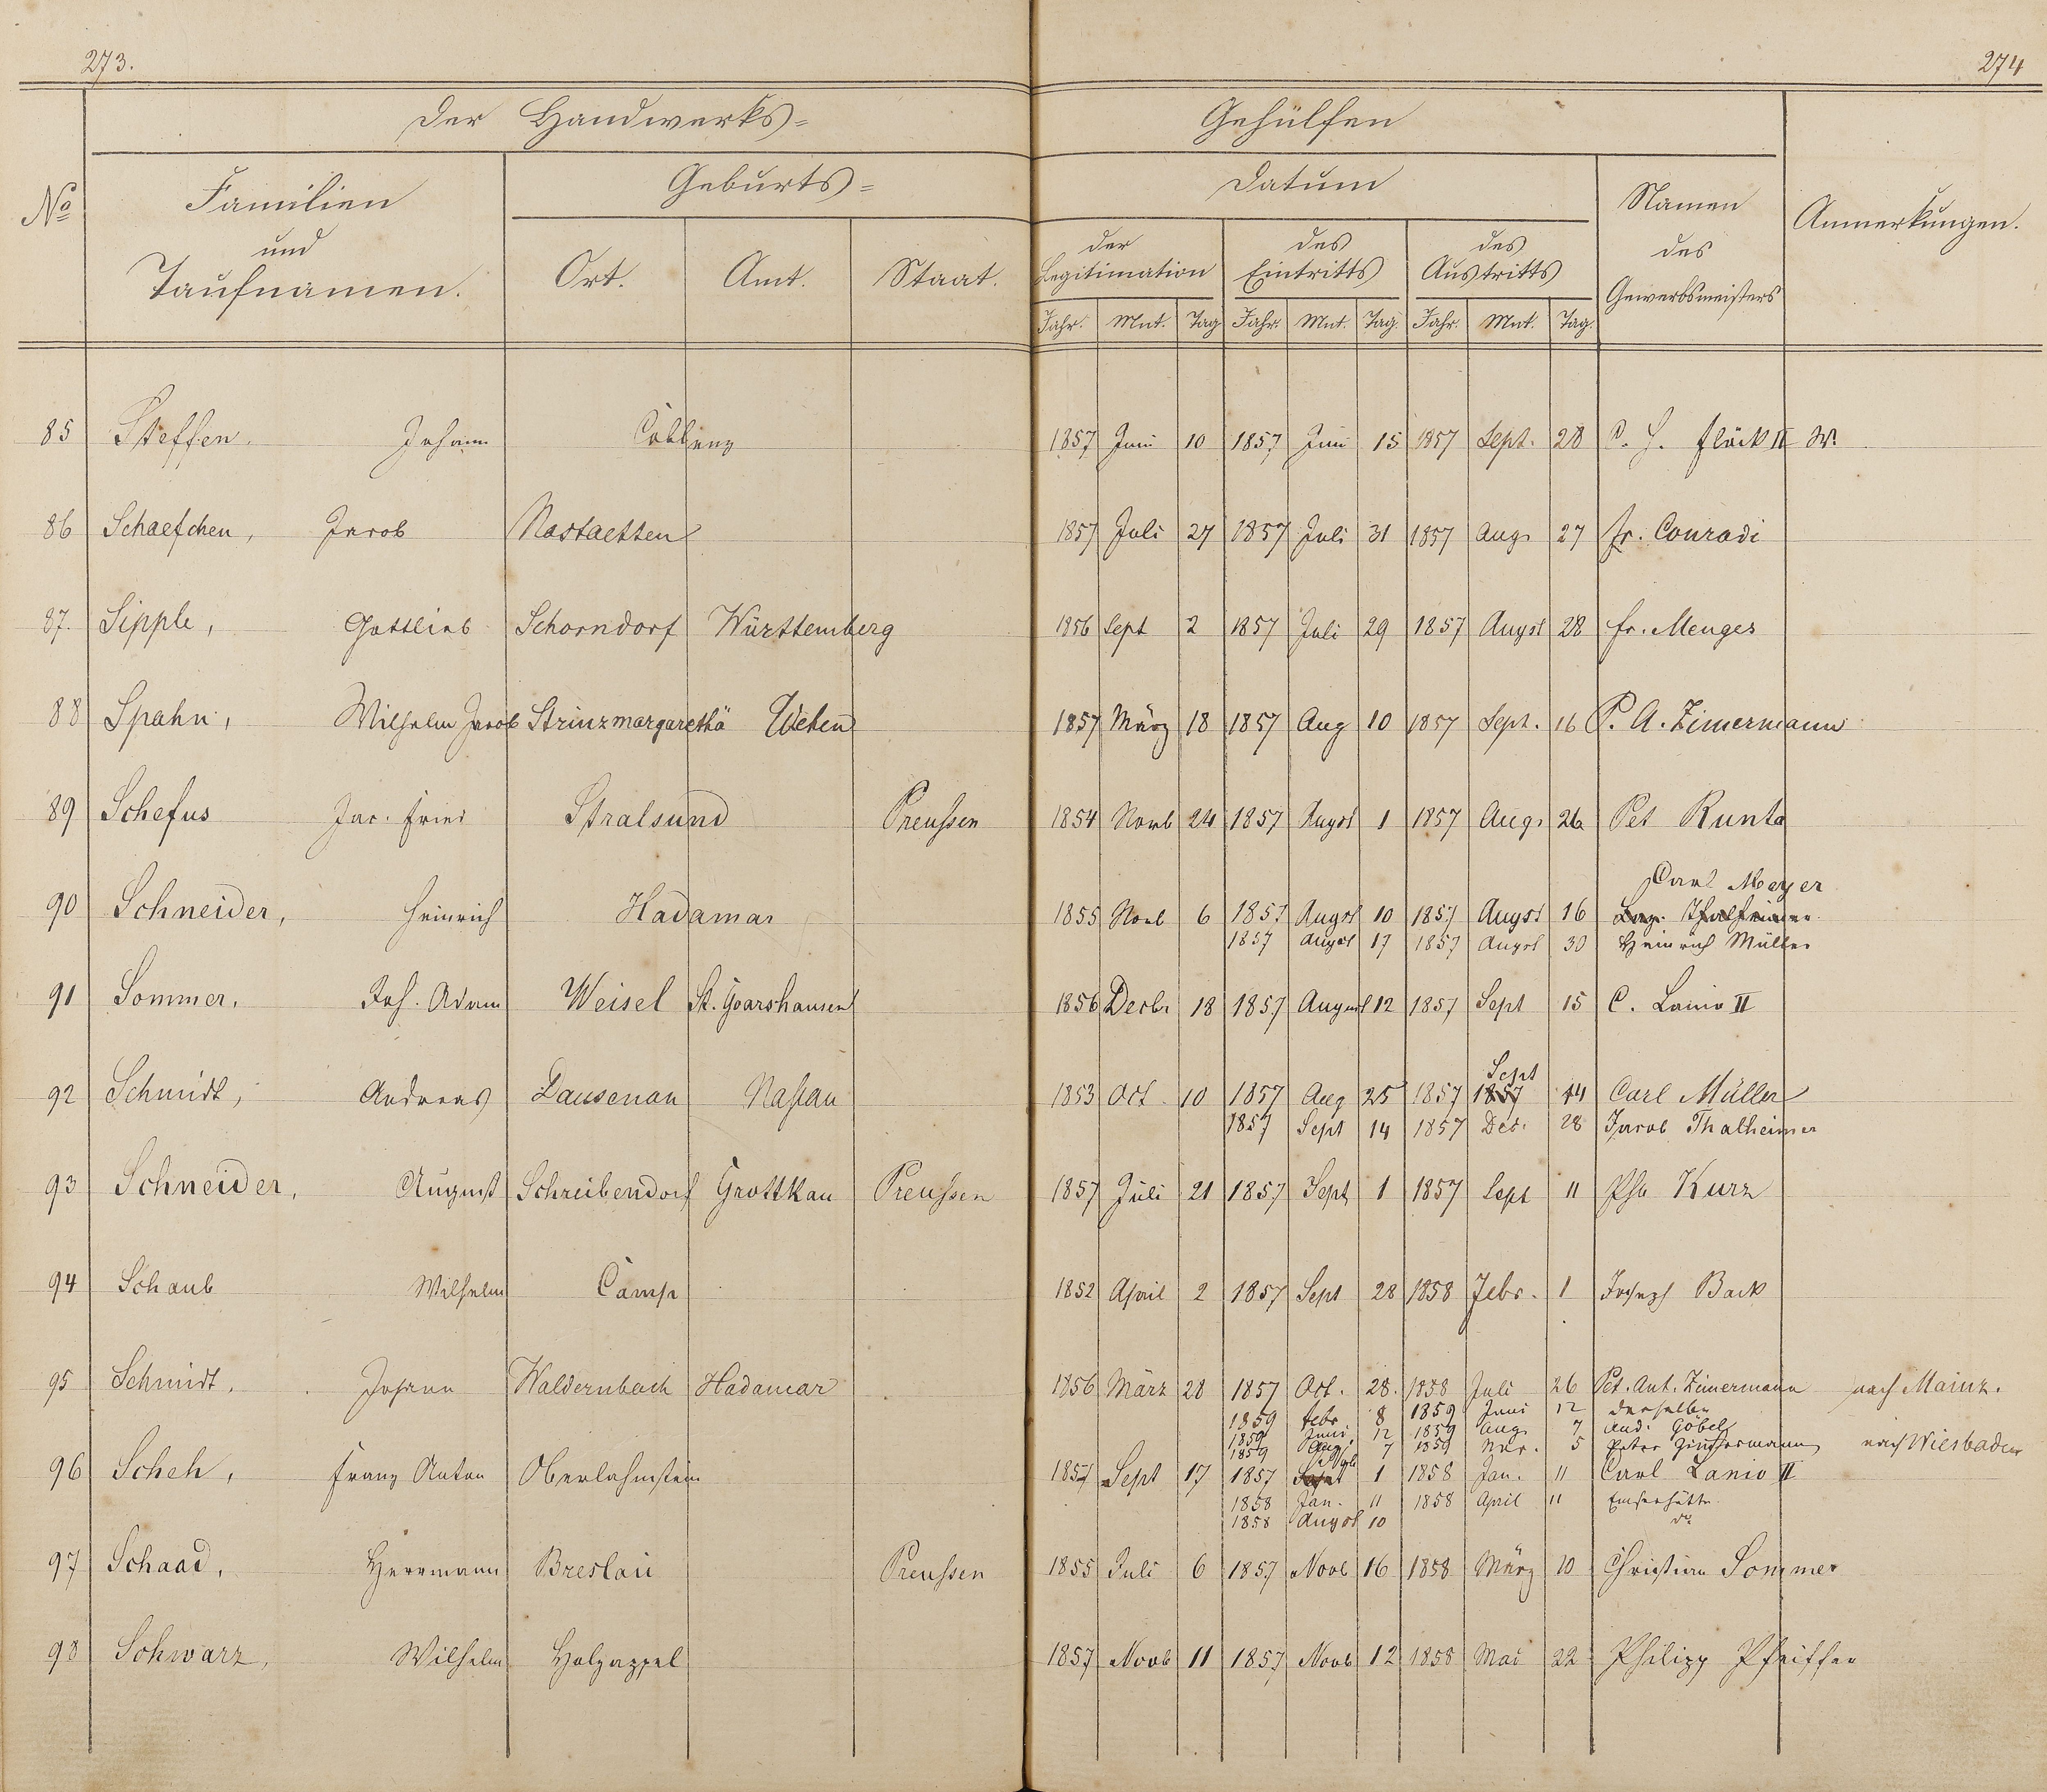 273.
274
Der Handwerks=
Gehülfen
No
Familien
und
Taufnamen.
Geburts=
Ort.
Amt.
Staat.
Datum
der
Legitimation
des
Eintritts
des
Austritts
Jahr. Mnt. Tag Jahr. Mnt. Tag. Jahr. Mnt. Tag.
Namen
des
Gewerbsmeisters
Anmerkungen.
85 Steffen. Johann Coblenz 1857 Juni 10 1857 Juni 15 1857 Sept. 28 Flöck II W.
86 Schaefchen, Jacob Nastaetten 1857 Juli 27 1857 Juli 31 1857 Aug. 27 Fr. Conradi
87. Sipple, Gottlieb Schorndorf Württemberg 1856 Sept 2 1857 Juli 29 1857 Augst 28 Fr. Menges
88 Spahn, Wilhelm Jacob Strinzmargarethä Wehen 1857 März 18 1857 Aug 10 1857 Sept. 16 P. A. Zimermann
89 Schefus Jac. Fried Stralsund Preussen 1854 Novb 24 1857 Augst 1 1857 Aug. 26 Pet Kunta
Carl Meyer
90 Schneider, Heinrich Hadamar 1855 Novb 6 1857 Augst 10 1857 Augst 16
1857 Augst 17 1857 Augst 30 Heinrich Müller
91 Sommer, Joh. Adam Weisel St. Goarshausen 1856 Decbr 18 1857 August 12 1857 Sept 15 C. Lanio II
Sept
92 Schmidt, Andreas Dausenau Nassau 1853 Oct. 10 1857 Aug 25 1857 1857 14 Carl Müller
1857 Sept 14 1857 Dec. 28 Jacob Thalheimer
93 Schneider, August Schreibendorf Grottkau Preussen 1857 Juli 21 1857 Sept 1 1857 Sept 11 Kurz
94 Schaub Wilhelm Camp 1852 April 2 1857 Sept 28 1858 Febr. 1 Joseph Back
95 Schmidt, Johann Waldernbach Hadamar 1856 März 28 1857 Oct. 28. 1858 Juli 26 Pet. Ant. Zimermann nach Mainz.
1859 Febr. 8 1859 Juni 12 derselbe
1859 Juni 12 1859 Aug 7 And. Göbel
1859 Aug. 7 1859 Nov. 5 Peter Zimmermann nach Wiesbaden
96 Scheh, Franz Anton Oberlahnstein 1857 Sept 17 1857 Sept 1 1858 Jan. 11 Carl Lanio II
1858 Jan. 11 1858 April 11 Emserhütte
1858 Augst 10 do
97 Schaad, Herrmann Breslau Preussen 1855 Juli 6 1857 Novb 16 1858 März 10 Christian Sommer
98 Schwarz, Wilhelm Holzappel 1857 Novb 11 1857 Novb 12 1858 Mai 22 Philipp Pfeiffer